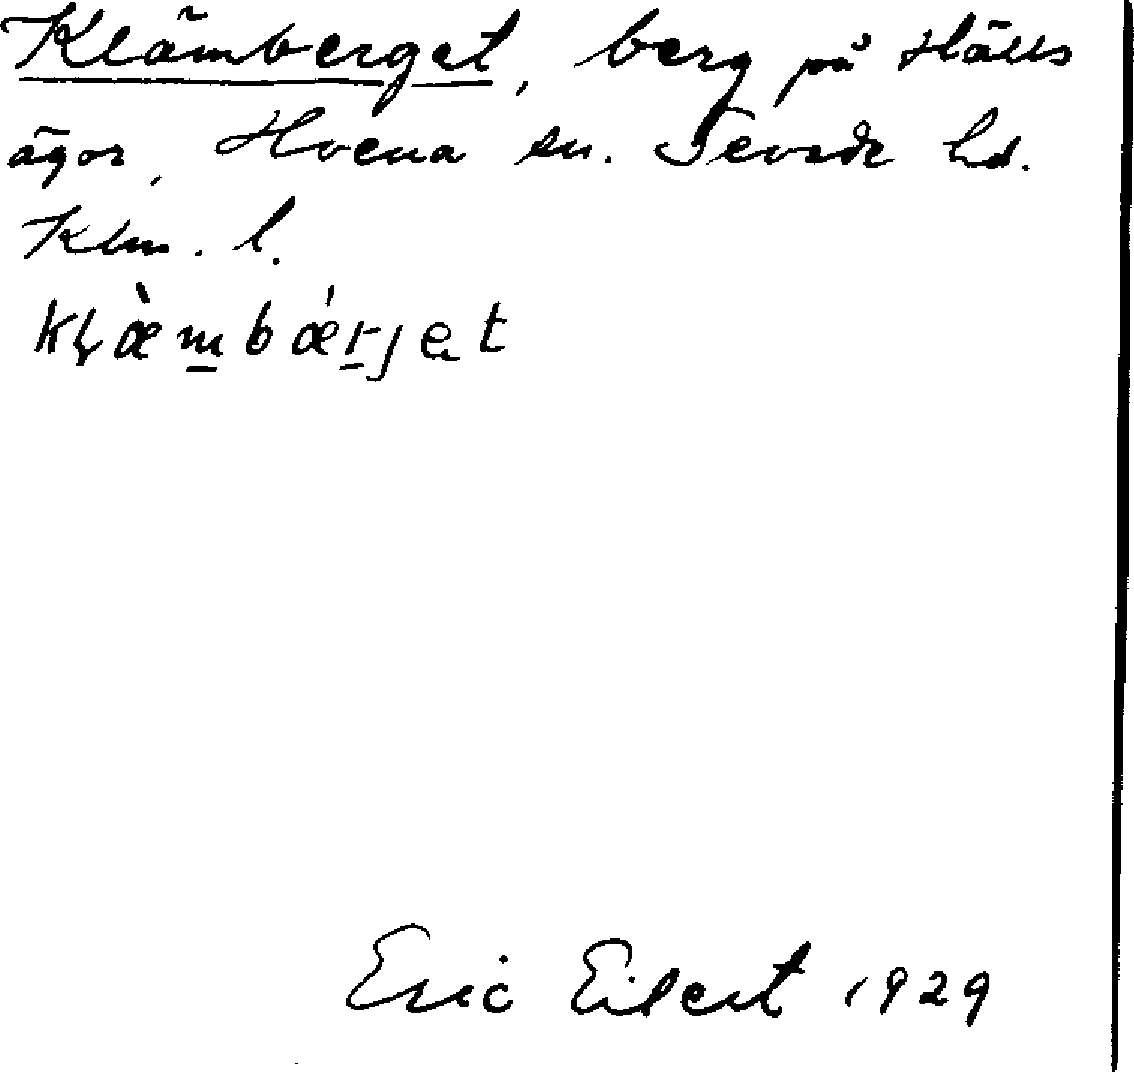 Klämberget, berg på Hälls
ägor, Hvena sn. Sevede hd.
Klm. l.
kḷæ̀m̲bǽr̲jet
Eric Eilert 1929